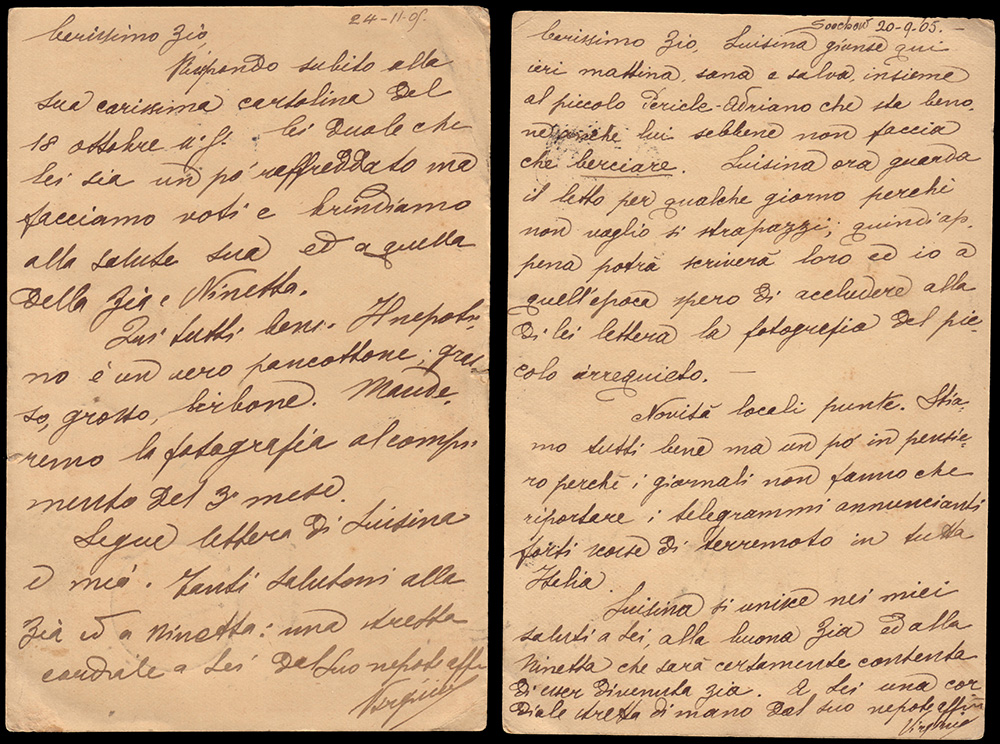 24-11-05.
Carissimo Zio,
Rispondo subito alla
sua carissima cartolina del
18 ottobre u.s. Ci duole che
Lei sia un pó raffreddato ma
facciamo voti e brindiamo
alla salute sua ed a quella
della Zia e Ninetta.
Qui tutti bene. Il nepoti-
no é un vero pancottone; gras-
so, grosso, birbone. Mande-
remo la fotografia al compi-
mento del 3º mese.
Segue lettera di Luisina
e mia. Tanti salutoni alla
Zia ed a Ninetta: una stretta
cordiale a Lei dal suo nepote aff.
Virginio
Soochow 20-9-'05.-
Carissimo Zio, Luisina giunse qui
ieri mattina, sana e salva, insieme
al piccolo Pericle-Adriano che sta beno-
ne anche lui sebbene non faccia
che berciare. Luisina ora guarda
il letto per qualche giorno perchè
non voglio si strapazzi; quindi ap-
pena potrà scriverà loro ed io a
quell'epoca spero di accludere alla
di lei lettera la fotografia del pic-
colo irrequieto. —
Novità locali punte. Stia-
mo tutti bene ma un pó in pensie-
ro perchè i giornali non fanno che
riportare i telegrammi annuncianti
forti scosse di terremoto in tutta
Italia.
Luisina si unisce nei miei
saluti a Lei, alla buona Zia ed alla
Ninetta che sarà certamente contenta
di esser divenuta zia. A Lei una cor-
diale stretta di mano dal suo nepote aff.mo
Virginio